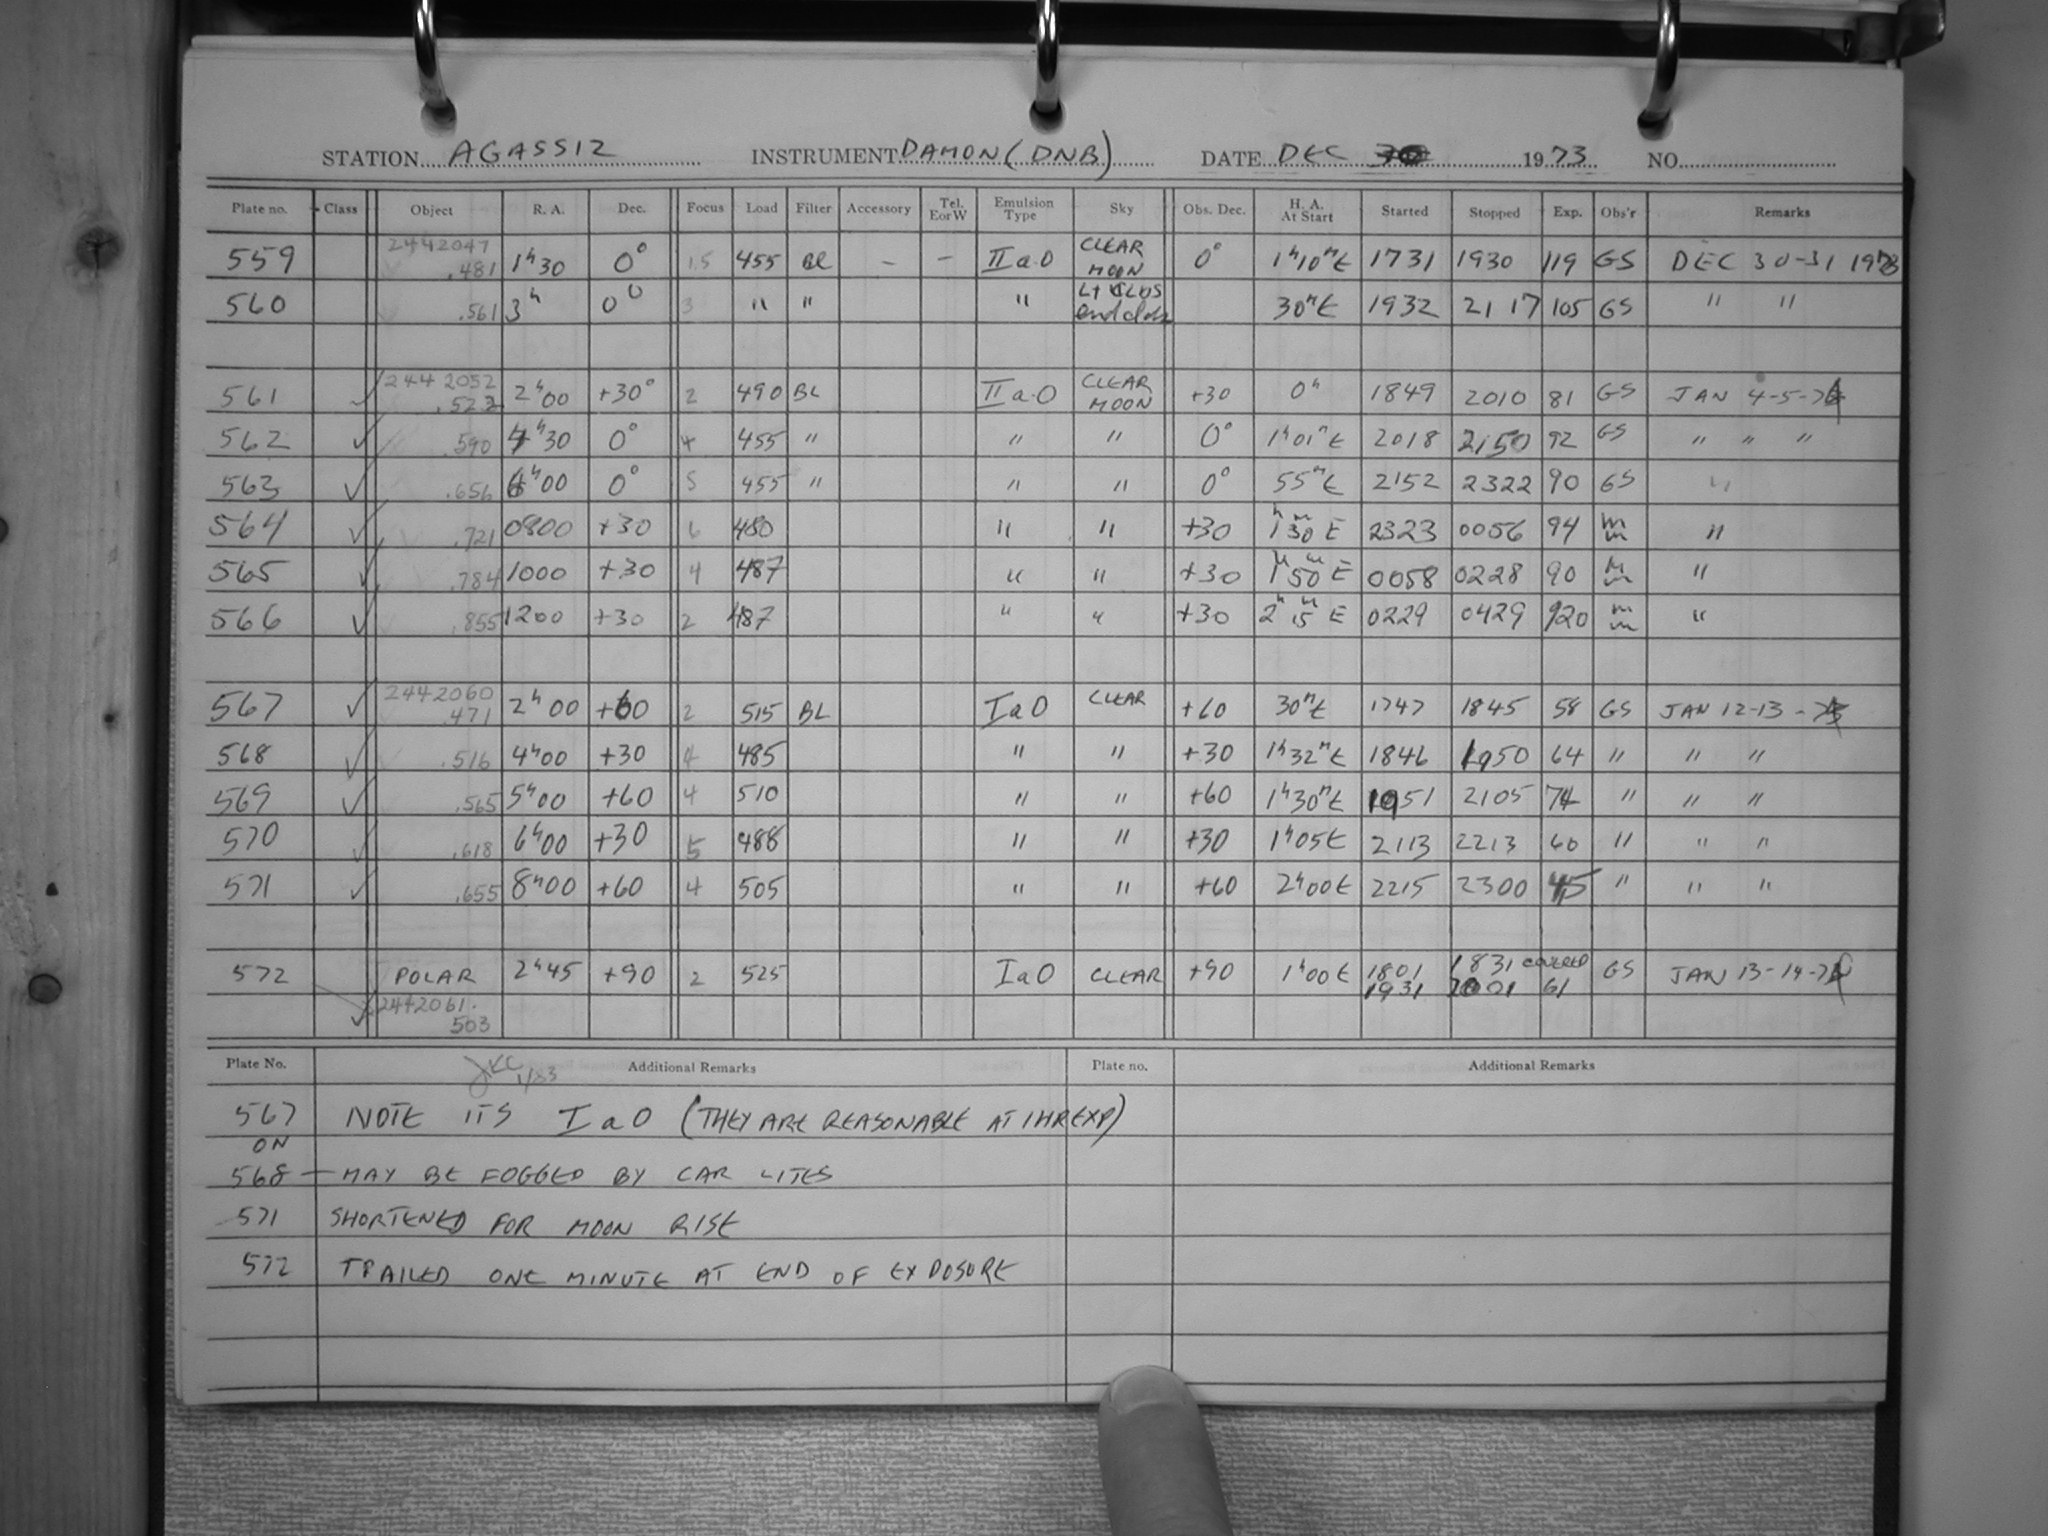 STATION AGASSIZ INSTRUMENT DAMON (DNB) DATE DEC 1973 NO.
Plate no. Class Object R. A. Dec. Focus Load Filter Accessory Tel. EorW Emulsion Type Sky Obs. Dec. H. A. At Start Started Stopped Exp. Obs'r Remarks
559 2442047 .481 1h30 0° 1.5 455 BL – – IIa-O CLEAR MOON 0° 1h10mE 1731 1930 119 GS DEC 30-31 1973
560 .561 3h 0° 3 " " " Lt CLDS end 30mE 1932 2117 105 GS " "
561 ✓ 2442052 .523 2h00 +30° 2 490 BL IIa-O CLEAR MOON +30 0h 1849 2010 81 GS JAN 4-5-74
562 ✓ .590 4h30 0° 4 455 " " " 0° 1h01mE 2018 2150 92 GS " " "
563 ✓ .656 6h00 0° 5 455 " " " 0° 55mE 2152 2322 90 GS "
564 ✓ .721 0800 +30 6 480 " " +30 1h30mE 2323 0056 94 mm "
565 ✓ .784 1000 +30 4 487 " " +30 1h50mE 0058 0228 90 mm "
566 ✓ .855 1200 +30 2 487 " " +30 2h15mE 0229 0429 120 mm "
567 ✓ 2442060 .471 2h00 +60 2 515 BL IaO CLEAR +60 30mE 1747 1845 58 GS JAN 12-13-74
568 ✓ .516 4h00 +30 4 485 " " +30 1h32mE 1846 1950 64 " " "
569 ✓ .565 5h00 +60 4 510 " " +60 1h30mE 1951 2105 74 " " "
570 ✓ .618 6h00 +30 5 488 " " +30 1h05E 2113 2213 60 " " "
571 ✓ .655 8h00 +60 4 505 " " +60 2h00E 2215 2300 45 " " "
572 POLAR 2h45 +90 2 525 IaO CLEAR +90 1h00E 1801 1831 COVERED GS JAN 13-14-74
1931 2001 61
✓ 2442061. 503
Plate No. JKC 1/83 Additional Remarks Plate no. Additional Remarks
567 NOTE ITS IaO (THEY ARE REASONABLE AT 1HR EXP)
ON
568 — MAY BE FOGGED BY CAR LITES
571 SHORTENED FOR MOON RISE
572 TRAILED ONE MINUTE AT END OF EXPOSURE